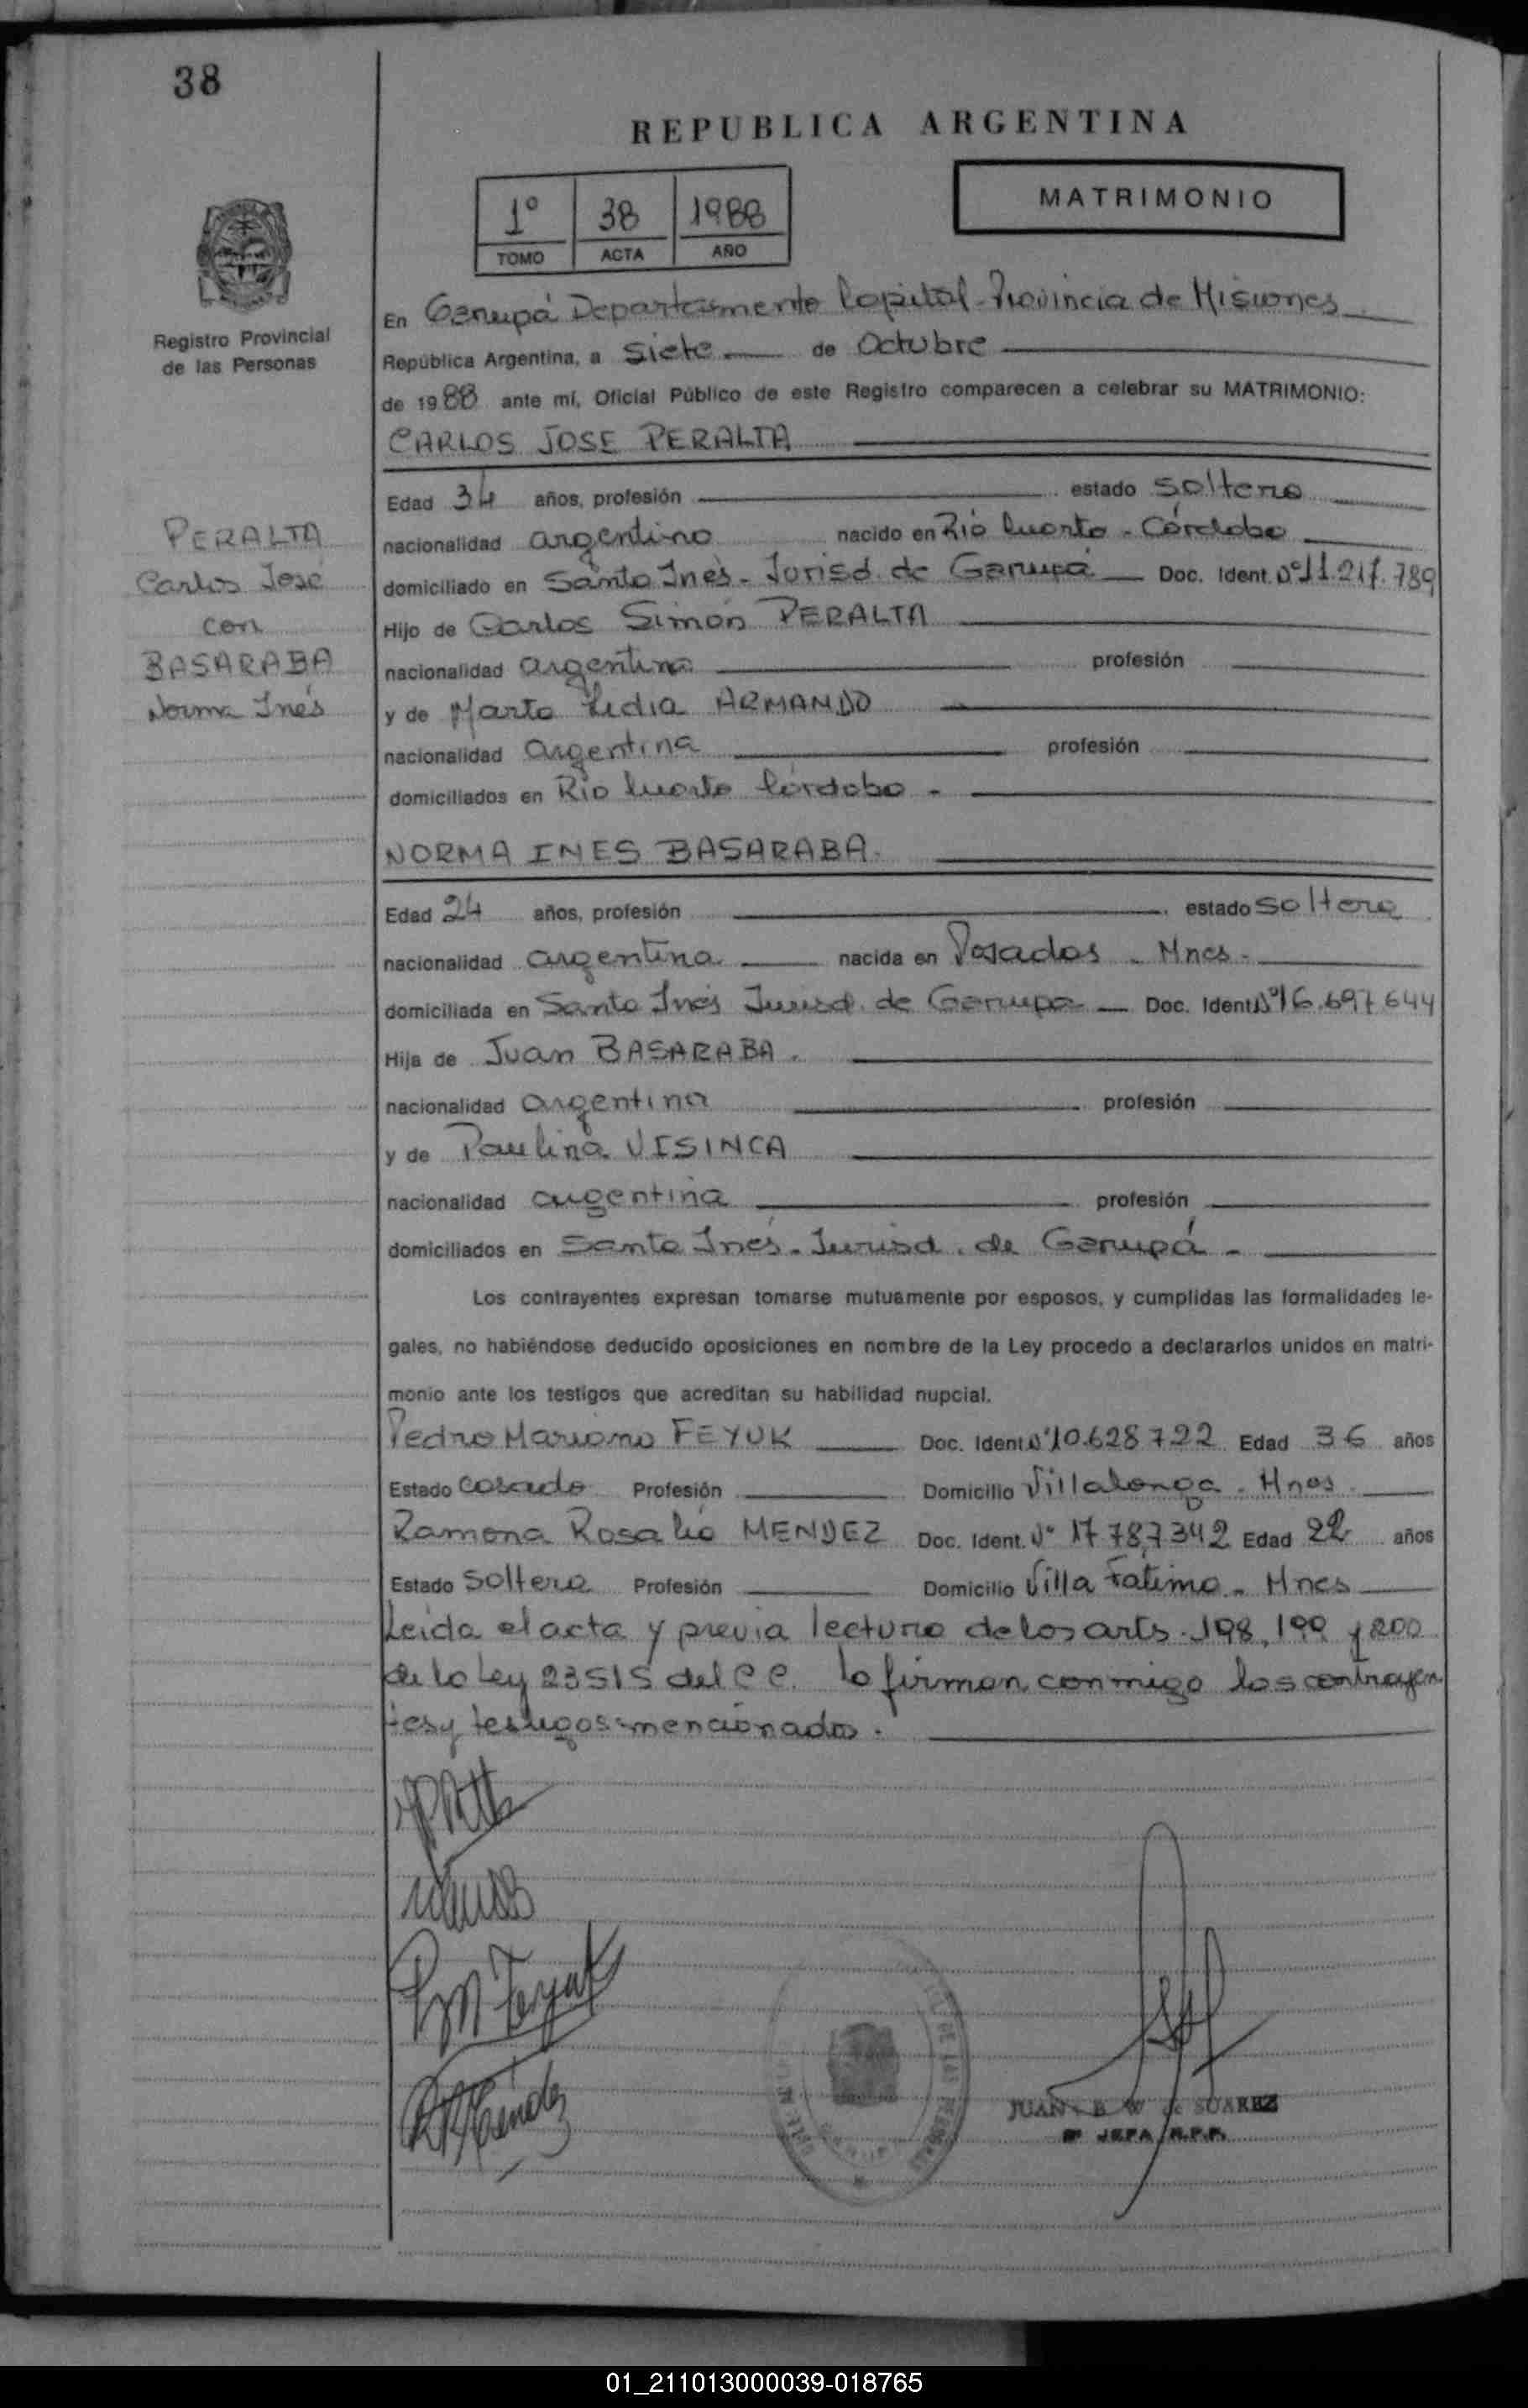 38
REPUBLICA ARGENTINA
1º 38 1988
TOMO ACTA AÑO
MATRIMONIO
Registro Provincial
de las Personas
En Garupá Departamento Capital - Provincia de Misiones
República Argentina, a siete de Octubre
de 1988 ante mí, Oficial Público de este Registro comparecen a celebrar su MATRIMONIO:
CARLOS JOSE PERALTA
Edad 34 años, profesión estado soltero
nacionalidad argentino nacido en Río Cuarto - Córdoba
domiciliado en Santa Inés - Jurisd. de Garupá Doc. Ident. Nº 11.217.789
Hijo de Carlos Simón PERALTA
nacionalidad argentina profesión
y de Marta Lidia ARMANDO
nacionalidad argentina profesión
domiciliados en Río Cuarto Córdoba -
PERALTA
Carlos José
con
BASARABA
Norma Inés
NORMA INES BASARABA.
Edad 24 años, profesión estado soltera
nacionalidad argentina nacida en Posadas - Mnes -
domiciliada en Santa Inés Jurisd. de Garupá Doc. Ident. Nº 16.697.644
Hija de Juan BASARABA.
nacionalidad argentina profesión
y de Paulina VISINCA
nacionalidad argentina profesión
domiciliados en Santa Inés - Jurisd. de Garupá -
Los contrayentes expresan tomarse mutuamente por esposos, y cumplidas las formalidades le-
gales, no habiéndose deducido oposiciones en nombre de la Ley procedo a declararlos unidos en matri-
monio ante los testigos que acreditan su habilidad nupcial.
Pedro Mariano FEYUK Doc. Ident. Nº 10.628722 Edad 36 años
Estado casado Profesión Domicilio Villalonga - Mnes
Ramona Rosalía MENDEZ Doc. Ident. Nº 17787342 Edad 22 años
Estado soltera Profesión Domicilio Villa Fátima - Mnes
Leída el acta y previa lectura de los arts. 198, 199 y 200
de la Ley 23515 del C C. la firman conmigo los contrayen
tes y testigos mencionados.
PM Feyuk
RRMéndez
JUANA B W de SUAREZ
JEFA R.P.P.
01_211013000039-018765